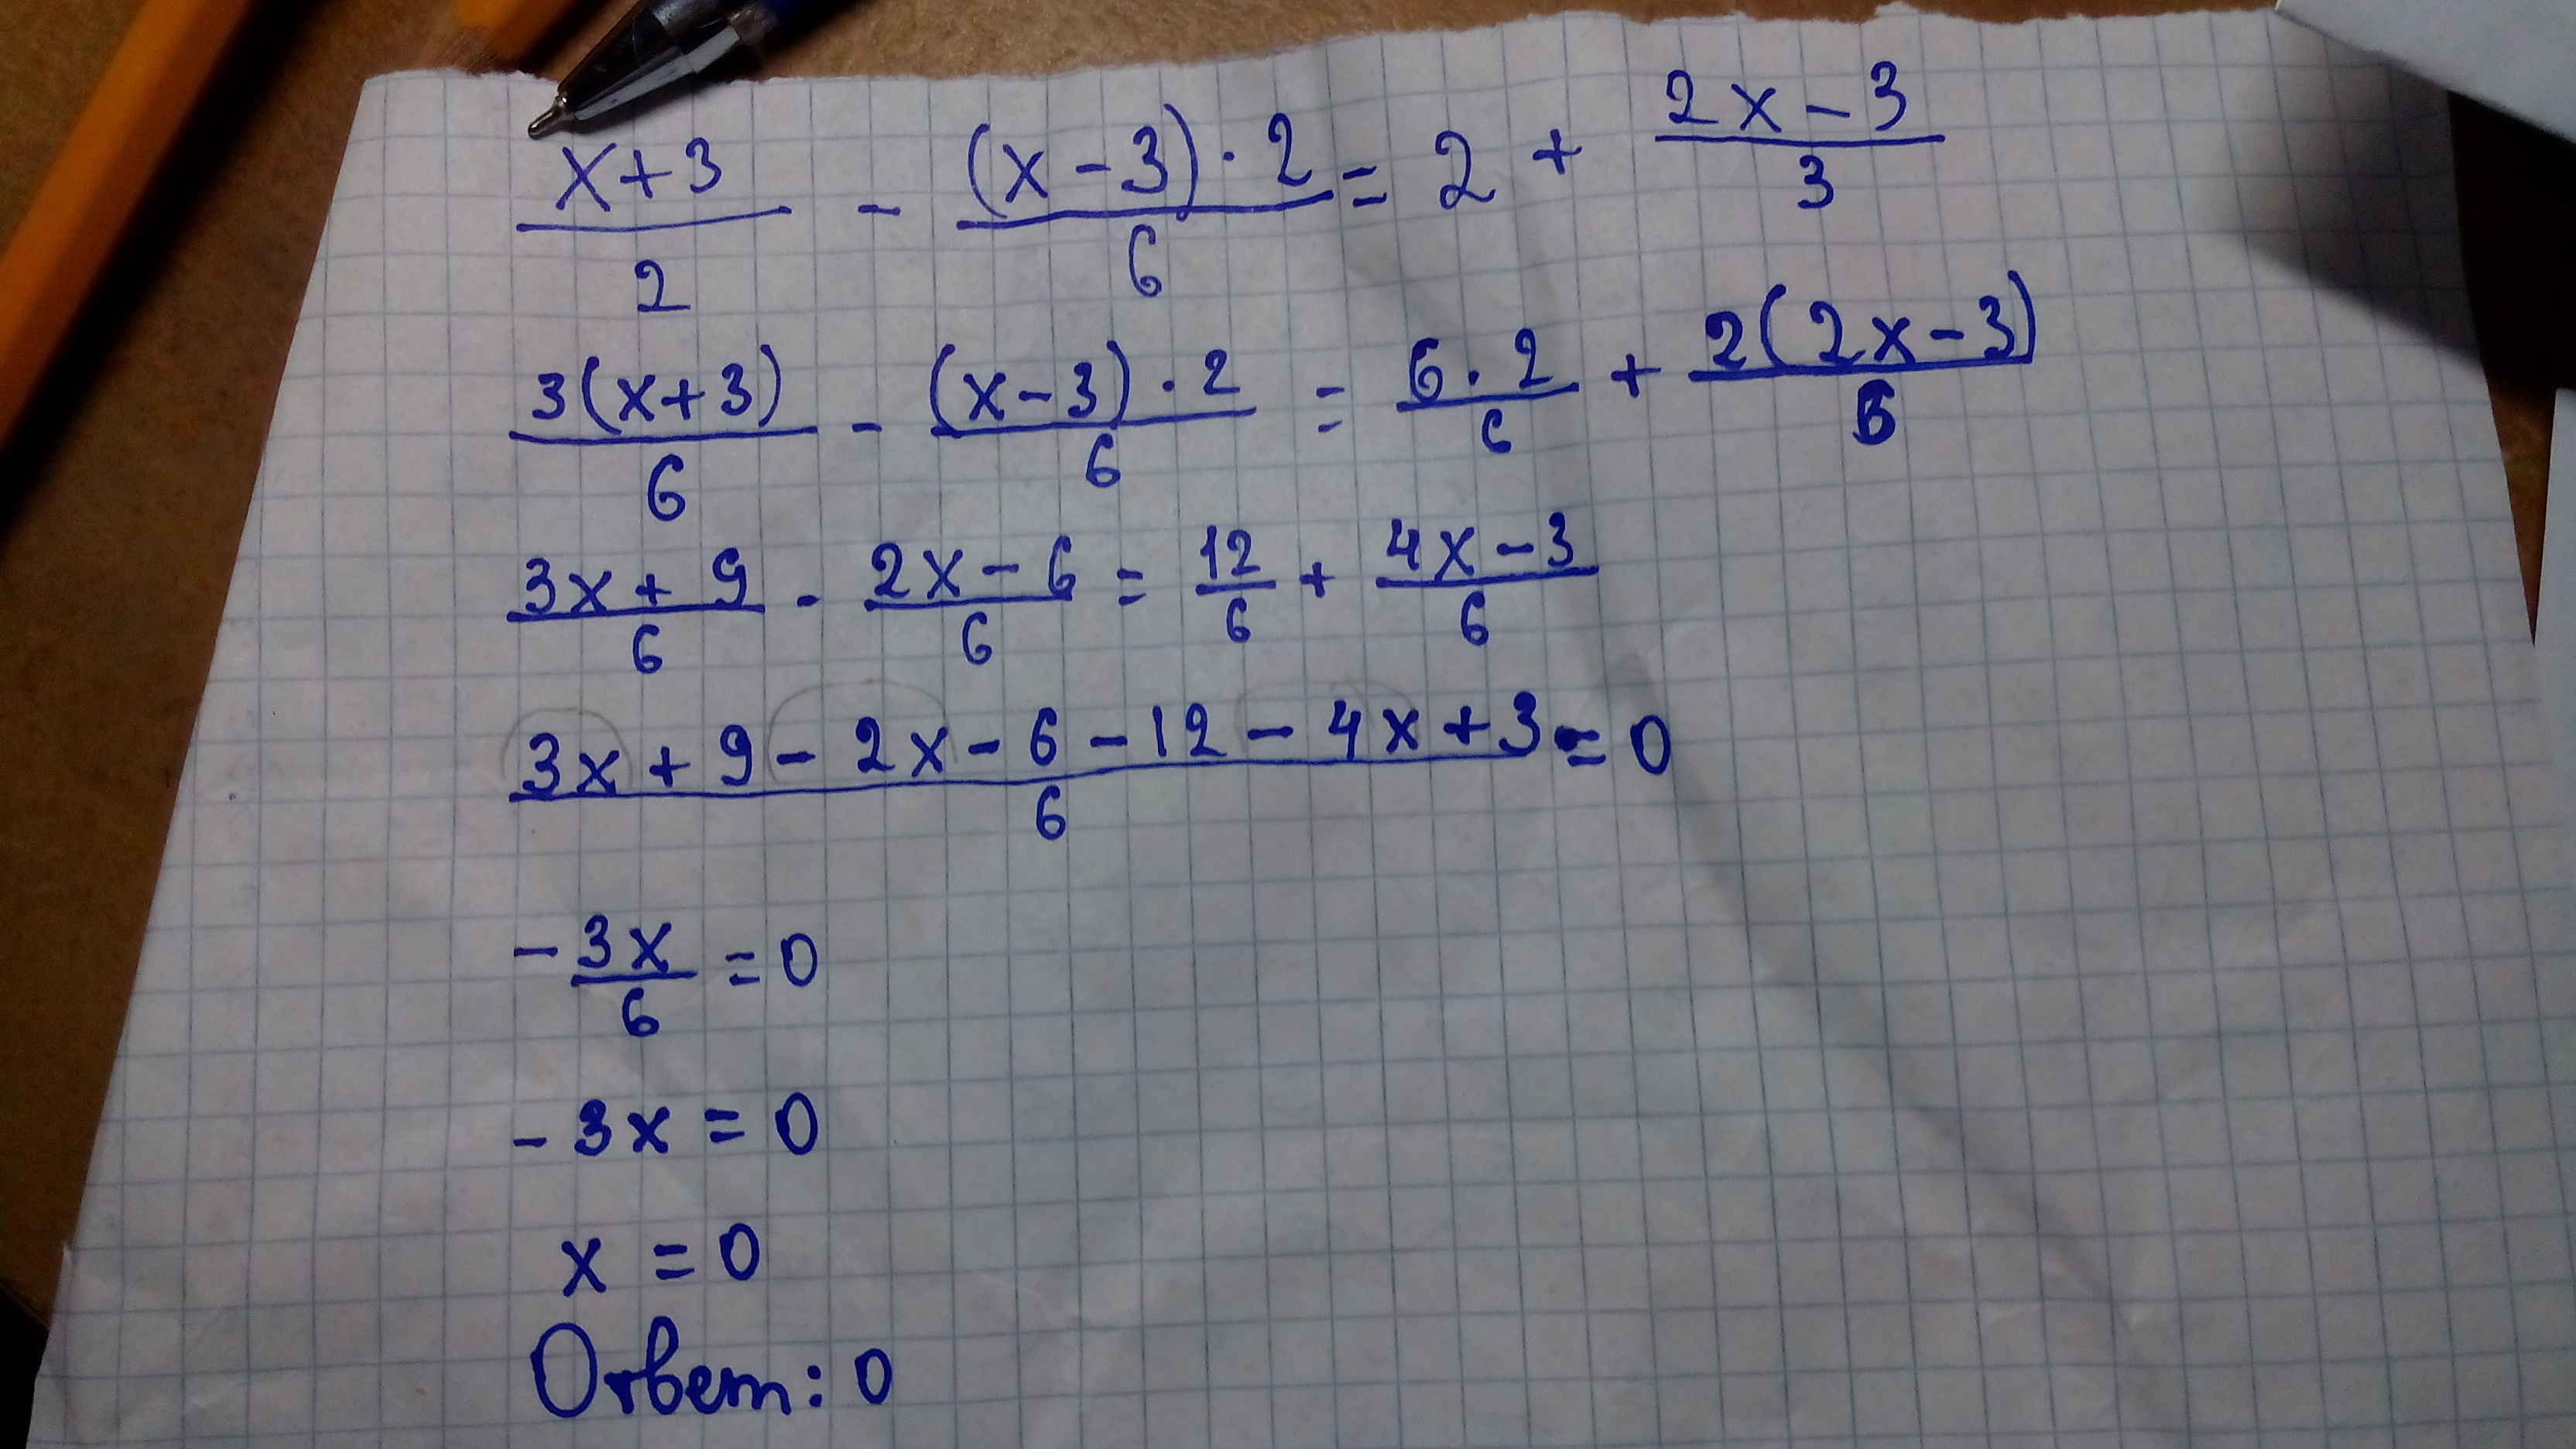 (x+3)/2 - ((x-3)·2)/6 = 2 + (2x-3)/3
3(x+3)/6 - ((x-3)·2)/6 = (6·2)/6 + 2(2x-3)/6
(3x+9)/6 - (2x-6)/6 = 12/6 + (4x-3)/6
(3x+9-2x-6-12-4x+3)/6 = 0
-3x/6 = 0
-3x = 0
x = 0
Ответ: 0